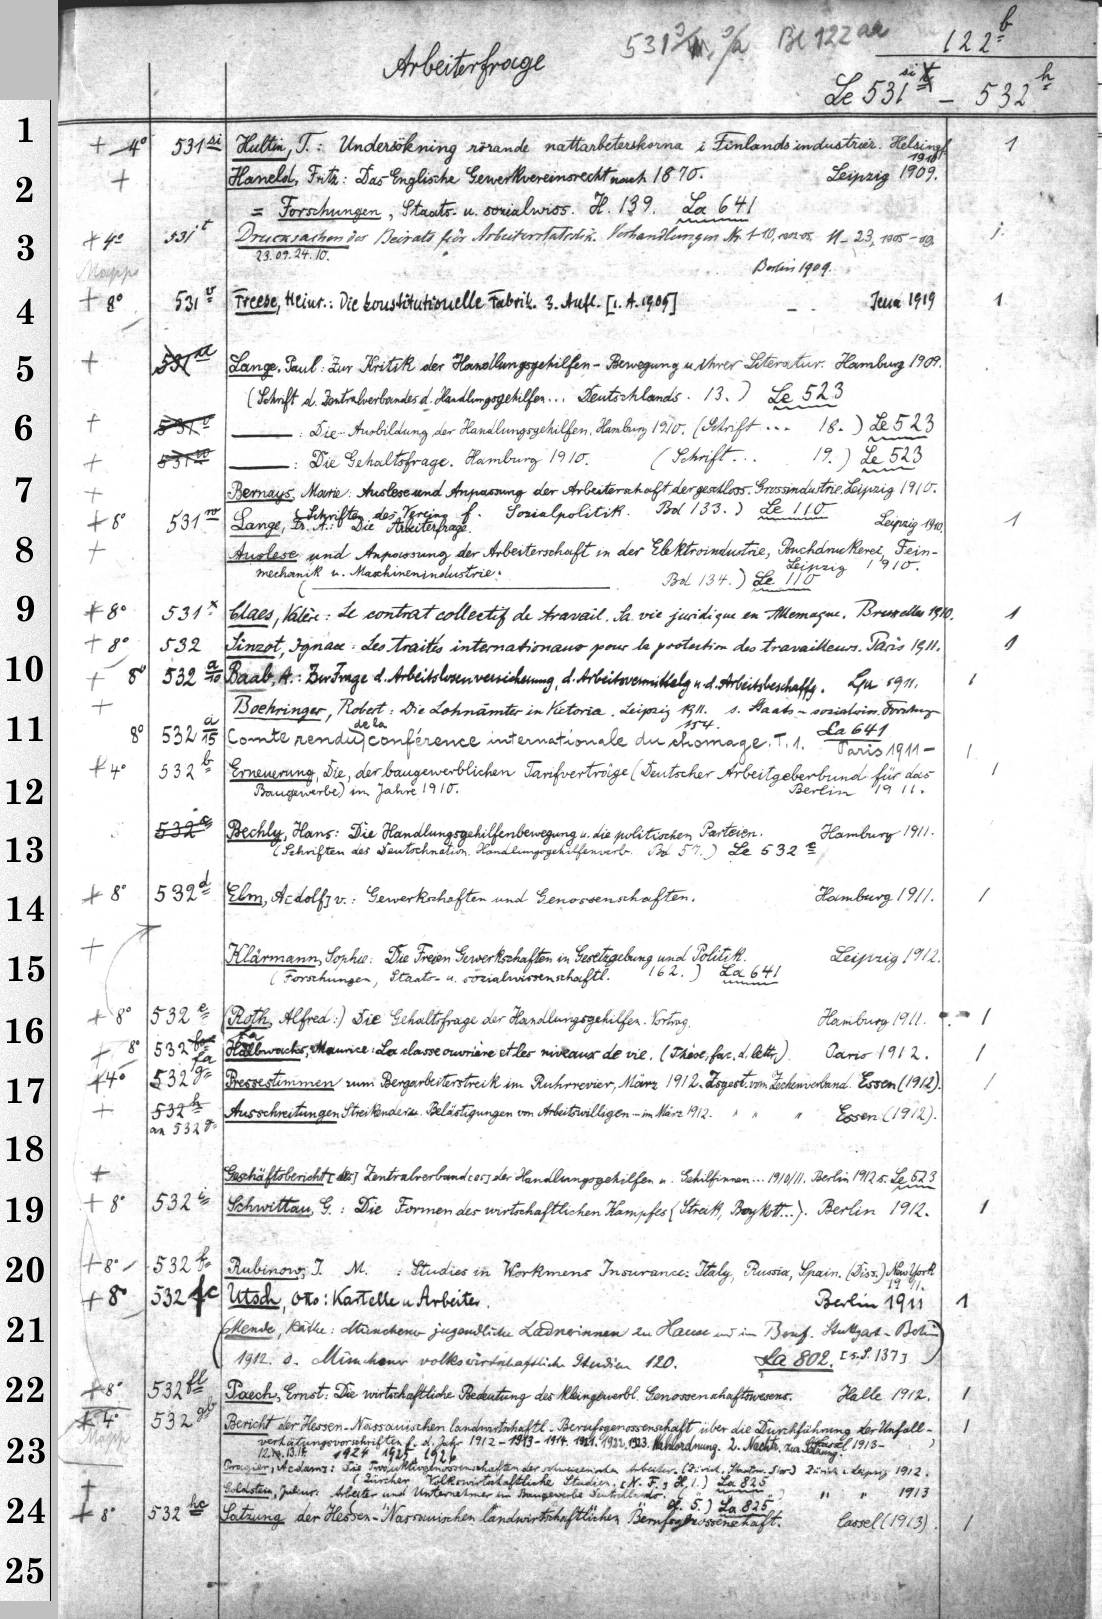 Arbeiterfrage
122 b
Le 531 si – 532 h
1
+ 4° 531 si Hultin, T.: Undersökning rörande nattarbeterskorna i Finlands industrier. Helsingf. 1910 1
2
+ Haneld, Fritz: Das Englische Gewerkvereinsrecht nach 1870. Leipzig 1909.
= Forschungen, Staats- u. sozialwiss. H. 139. La 641
3
+ 4° 531 t Drucksachen des Beirats für Arbeiterstatistik. Verhandlungen Nr. 1-10, 11-23, 1905-09.
23.09.24.10.
Mappe
Berlin 1909.
4
+ 8° 531 v Freese, Heinr.: Die konstitutionelle Fabrik. 3. Aufl. [1. A. 1909] Jena 1919 1
5
+ 531 Lange, Paul: Zur Kritik der Handlungsgehilfen-Bewegung u. ihrer Literatur. Hamburg 1909.
(Schrift d. Zentralverbandes d. Handlungsgehilfen... Deutschlands. 13.) Le 523
6
+ 531 v ——: Die Ausbildung der Handlungsgehilfen. Hamburg 1910. (Schrift ... 18.) Le 523
+ 531 w ——: Die Gehaltsfrage. Hamburg 1910. (Schrift... 19.) Le 523
7
+ Bernays, Marie: Auslese und Anpassung der Arbeiterschaft der geschloss. Grossindustrie. Leipzig 1910.
(Schriften des Vereins f. Sozialpolitik. Bd 133.) Le 110
+ 8° 531 w Lange, F. A.: Die Arbeiterfrage. Leipzig 1910. 1
8
+ Auslese und Anpassung der Arbeiterschaft in der Elektroindustrie, Buchdruckerei, Fein-
mechanik u. Maschinenindustrie. Leipzig 1910.
( —— Bd 134.) Le 110
9
+ 8° 531 x Claes, Valère: Le contrat collectif de travail. Sa vie juridique en Allemagne. Bruxelles 1910. 1
+ 8° 532 Sinzot, Ignace: Les traités internationaux pour la protection des travailleurs. Paris 1911. 1
10
+ 8° 532 a/10 Baab, A.: Zur Frage d. Arbeitslosenversicherung, d. Arbeitsvermittelg u. d. Arbeitsbeschaffg. Lpz 1911. 1
+ Boehringer, Robert: Die Lohnämter in Victoria. Leipzig 1911. s. Staats- sozialwiss. Forschung
154. La 641
11
8° 532 a/15 Compte rendu de la conférence internationale du chomage. T. 1. Paris 1911- 1
+ 4° 532 b Erneuerung, Die, der baugewerblichen Tarifverträge (Deutscher Arbeitgeberbund für das 1
12
Baugewerbe) im Jahre 1910. Berlin 1911.
532 c Bechly, Hans: Die Handlungsgehilfenbewegung u. die politischen Parteien. Hamburg 1911.
13
(Schriften des Deutschnation. Handlungsgehilfenverb. Bd 57.) Le 532 c
+ 8° 532 d Elm, A[dolf] v.: Gewerkschaften und Genossenschaften. Hamburg 1911. 1
14
+ Klärmann, Sophie: Die Freien Gewerkschaften in Gesetzgebung und Politik. Leipzig 1912.
15
(Forschungen, Staats- u. sozialwissenschaftl. 162.) La 641
+ 8° 532 e (Roth, Alfred:) Die Gehaltsfrage der Handlungsgehilfen. Vortrag. Hamburg 1911. 1
16
+ 8° 532 fa Halbwachs, Maurice: La classe ouvrière et les niveaux de vie. (Thèse, fac. d. lettr.) Paris 1912. 1
17
+ 4° 532 g Pressestimmen zum Bergarbeiterstreik im Ruhrrevier, März 1912. Zsgest. vom Zechenverband. Essen (1912). 1
+ 532 h Ausschreitungen Streikender u. Belästigungen von Arbeitswilligen - im März 1912. " " " Essen (1912).
an 532 g
18
+ Geschäftsbericht [des] Zentralverband[es] der Handlungsgehilfen u. Gehilfinnen... 1910/11. Berlin 1912 s. Le 523
19
+ 8° 532 i Schwittau, G.: Die Formen des wirtschaftlichen Kampfes (Streik, Boykott...). Berlin 1912. 1
20
+ 8° 532 k Rubinow, I. M.: Studies in Workmens Insurance: Italy, Russia, Spain. (Diss.) New York 1911.
+ 8° 532 Utsch, Otto: Kartelle u. Arbeiter. Berlin 1911 1
21
(Mende, Käthe: Münchener jugendliche Ladnerinnen zu Hause und im Beruf. Stuttgart - Berlin
1912. s. Münchener volkswirtschaftliche Studien 120. La 802. [s. S. 137])
22
+ 8° 532 fl Paech, Ernst: Die wirtschaftliche Bedeutung des kleingewerbl. Genossenschaftswesens. Halle 1912. 1
+ 4° 532 Bericht der Hessen-Nassauischen landwirtschaftl. Berufsgenossenschaft über die Durchführung der Unfall-
Mappe
23
verhütungsvorschriften f. d. Jahr 1912-1913-1914. 1921. 1922. 1923. Cassel 1913-
1924 1925 1926
+ (Zürcher Volkswirtschaftliche Studien. (N. F.) H. 1.) La 825
+ Goldstein, Arbeiter und Unternehmer im Baugewerbe Deutschlands. " " 1913
H. 5.) La 825
24
+ 8° 532 hc Satzung der Hessen-Nassauischen landwirtschaftlichen Berufsgenossenschaft. Cassel (1913). 1
25